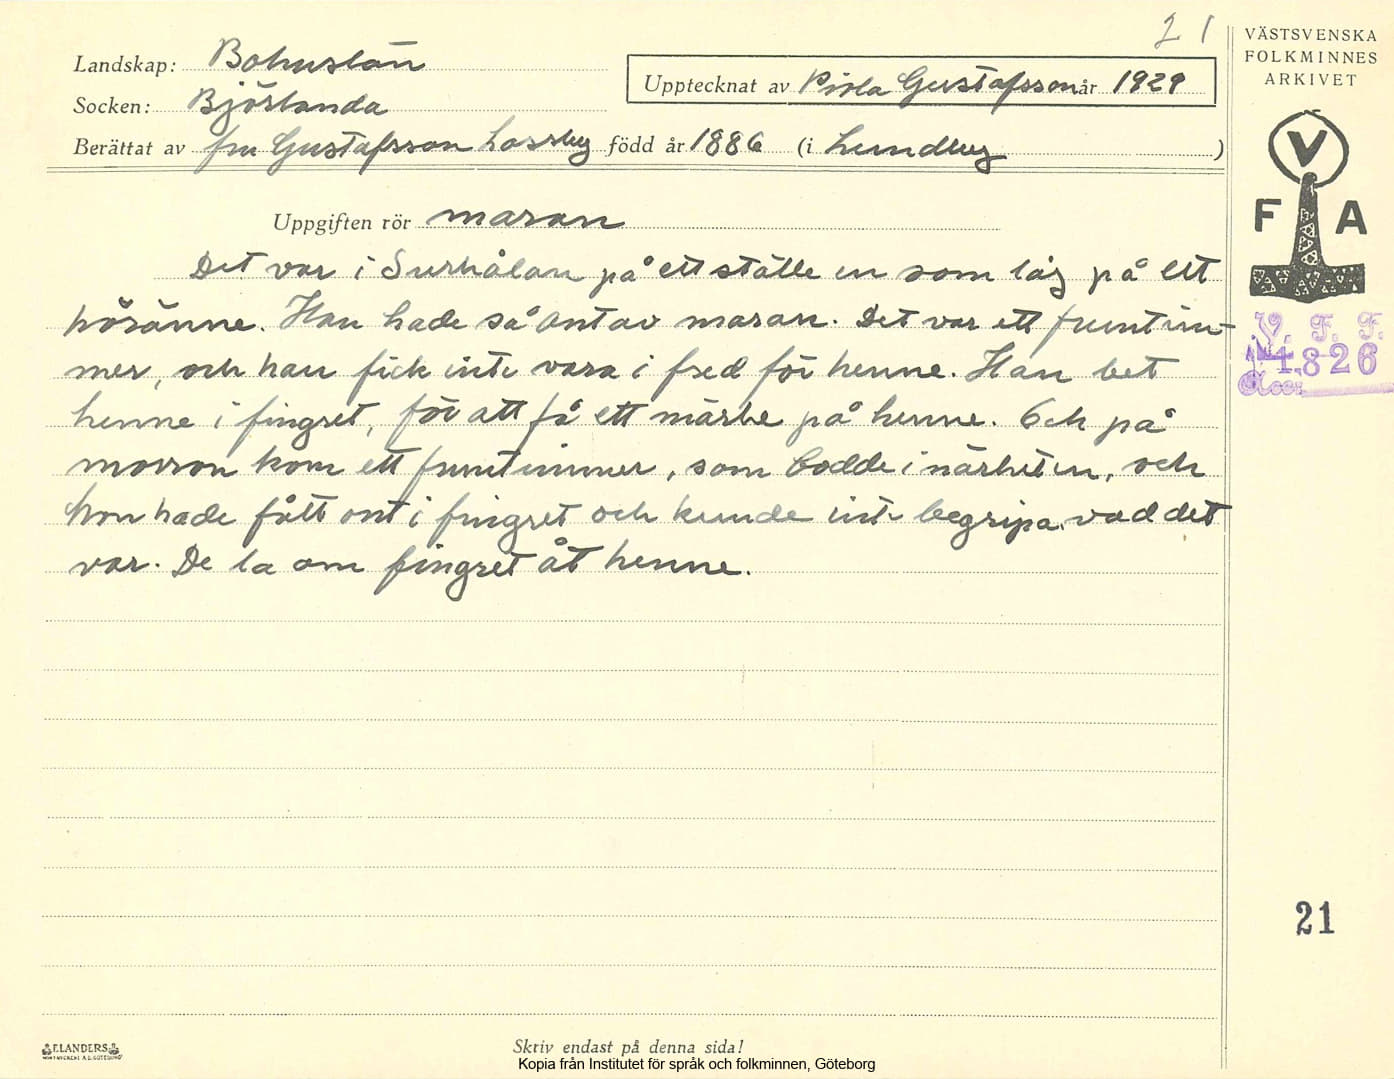 21
VÄSTSVENSKA
FOLKMINNES
ARKIVET
Landskap: Bohuslän
Upptecknat av Pirla Gustafsson år 1929
Socken: Björlanda
Berättat av fru Gustafsson Lossby född år 1886 (i Lundby)
V
F A
Uppgiften rör maran
Det var i Surhålan på ett ställe en som låg på ett
höränne. Han hade så ont av maran. Det var ett fruntim-
mer, och han fick inte vara i fred för henne. Han bet
henne i fingret, för att få ett märke på henne. Och på
morron kom ett fruntimmer, som bodde i närheten, och
hon hade fått ont i fingret och kunde inte begripa vad det
var. De la om fingret åt henne.
V. F. F.
1,826
Acc:
21
ELANDERS
Skriv endast på denna sida!
Kopia från Institutet för språk och folkminnen, Göteborg